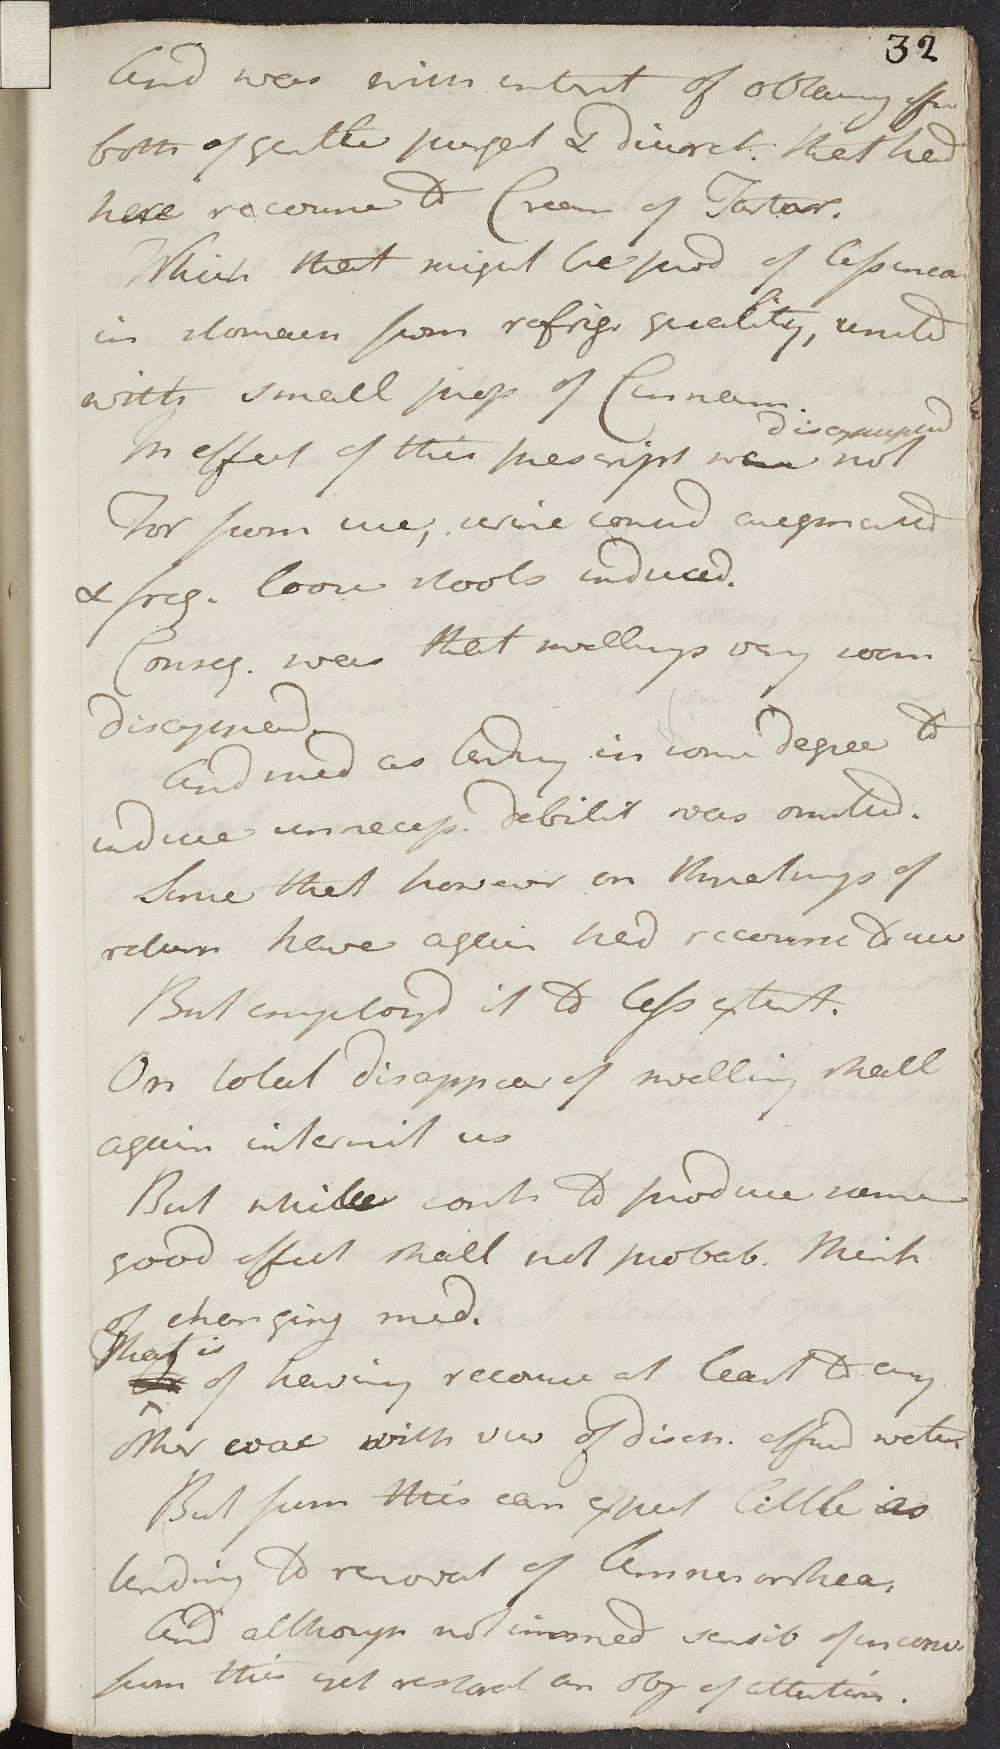 32
And was with intent of obtaining effe
both of gentle purgat & diuret. that had
here recourse to Cream of Tartar.
Which that might be prod of less uneas
in stomach from refrig. quality, united
with small prop of Cinnam.
In effect of this prescript was not disappointed
For from use, urine consid augmented
& freq. loose stools induced.
Conseq. was that swellings very soon
disappeared.
And med as tending in some degree to
induce unnecess. debilit was omitted.
Since that however on threatnings of
return have again had recourse to use
But employd it to less extent.
On total disappear of swelling shall
again intermit us
But while conts to produce same
good effect shall not probab. think
of changing med.
That is of having recourse at least to any
other evac with view of disch. effused water
But from this can expect little as
tending to removal of Amenorrhea.
And although not immed sensib of inconv.
from this yet restorat an obj of attention.